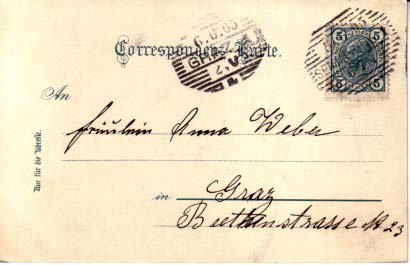 Correspondenz-Karte.
6.6.03
GRAZ
5 5
5 5
An
Fräulein Anna Weber
Nur für die Adresse.
in Graz
Beethenstrasse N 23